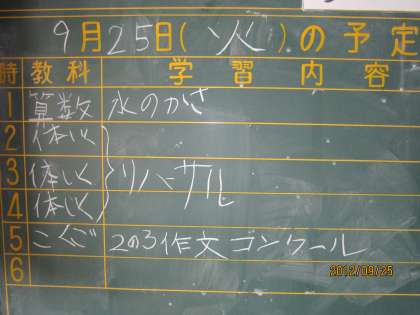 9月25日(火)の予定
時 教科 学習内容
1 算数 水のかさ
2 体いく
3 体いく リハーサル
4 体いく
5 こくご 2の3作文コンクール
6
2012/09/25